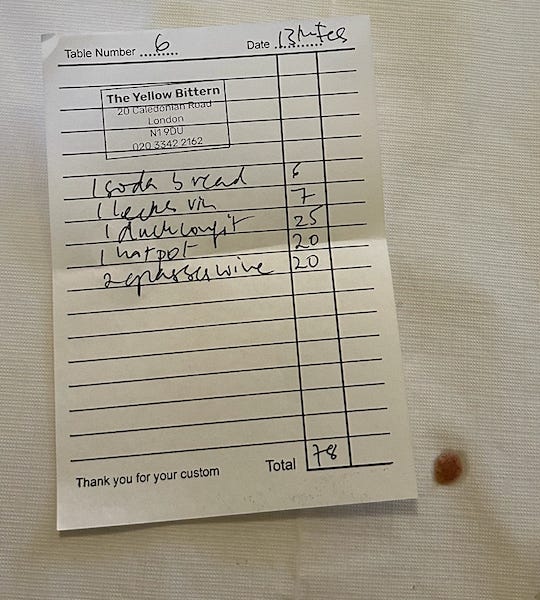 Table Number ......... 6
Date ............ 13th Feb
The Yellow Bittern
20 Caledonian Road
London
N1 9DU
020 3342 2162
1 soda bread 6
1 leeks vin 7
1 duck confit 25
1 hotpot 20
2 glasses wine 20
Thank you for your custom
Total 78